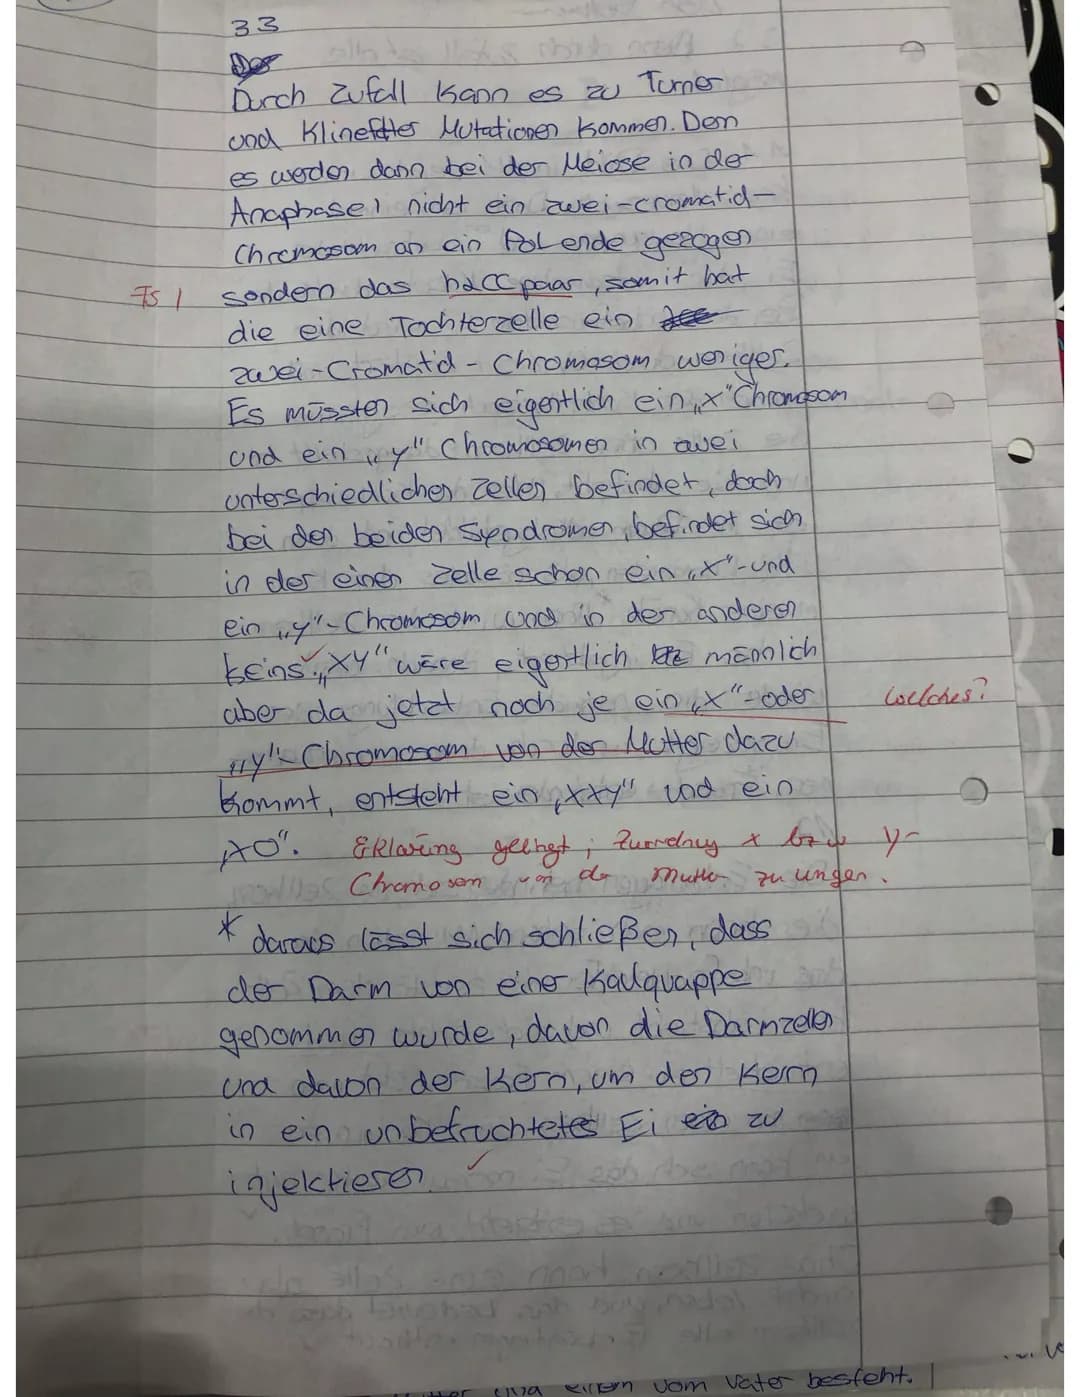 33
Der
Durch Zufall kann es zu Turner
und Klinefelter Mutationen kommen. Den
es werden dann bei der Meiose in der
Anaphase 1 nicht ein zwei-cromatid-
Chromosom an ein Polende gezogen
Fs 1 sondern das paar, somit hat
die eine Tochterzelle ein
zwei-Cromatid-Chromosom weniger.
Es müssten sich eigentlich ein „x" Chromosom
und ein „y" Chromosomen in zwei
unterschiedlichen Zellen befindet, doch
bei den beiden Syndromen, befindet sich
in der einen Zelle schon ein „x"-und
ein „y"-Chromosom und in der anderen
keins. „XY" wäre eigentlich männlich
aber da jetzt noch je ein „x"-oder Welches?
„y"-Chromosom von der Mutter dazu
kommt, entsteht ein „XXY" und ein
„XO". Erklärung gelingt; Zuordnung x bzw y-
Chromosom von der Mutter zu ungen.
* daraus lässt sich schließen, dass
der Darm von einer Kaulquappe
genommen wurde, davon die Darmzellen
und davon der Kern, um den Kern
in ein unbefruchtetes Ei ein zu
injektieren.
und einem vom Vater besteht.